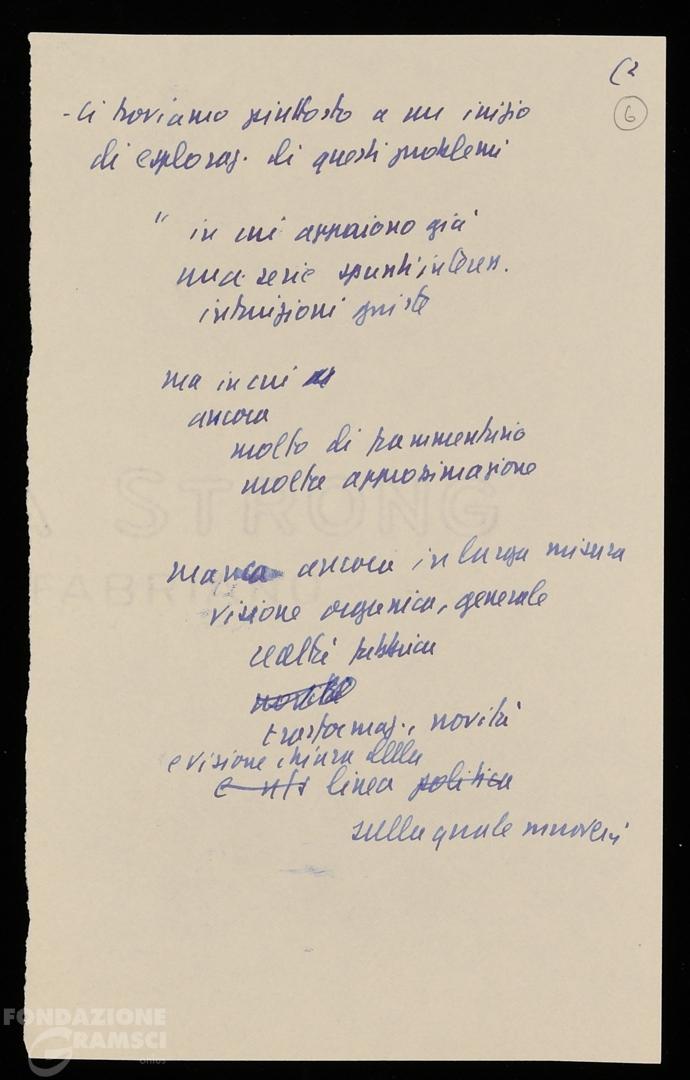 (2
6
- Ci troviamo piuttosto a un inizio
di esploraz. di questi problemi
" in cui appaiono già
una serie spunti, interess.
intuizioni giuste
ma in cui
ancora
molto di frammentario
molta approssimazione
manca ancora in larga misura
visione organica, generale
realtà fabbrica
trasformaz., novità
e visione chiara della
linea politica
sulla quale muoversi
A STRONG
FABRIANO
FONDAZIONE
GRAMSCI
onlus